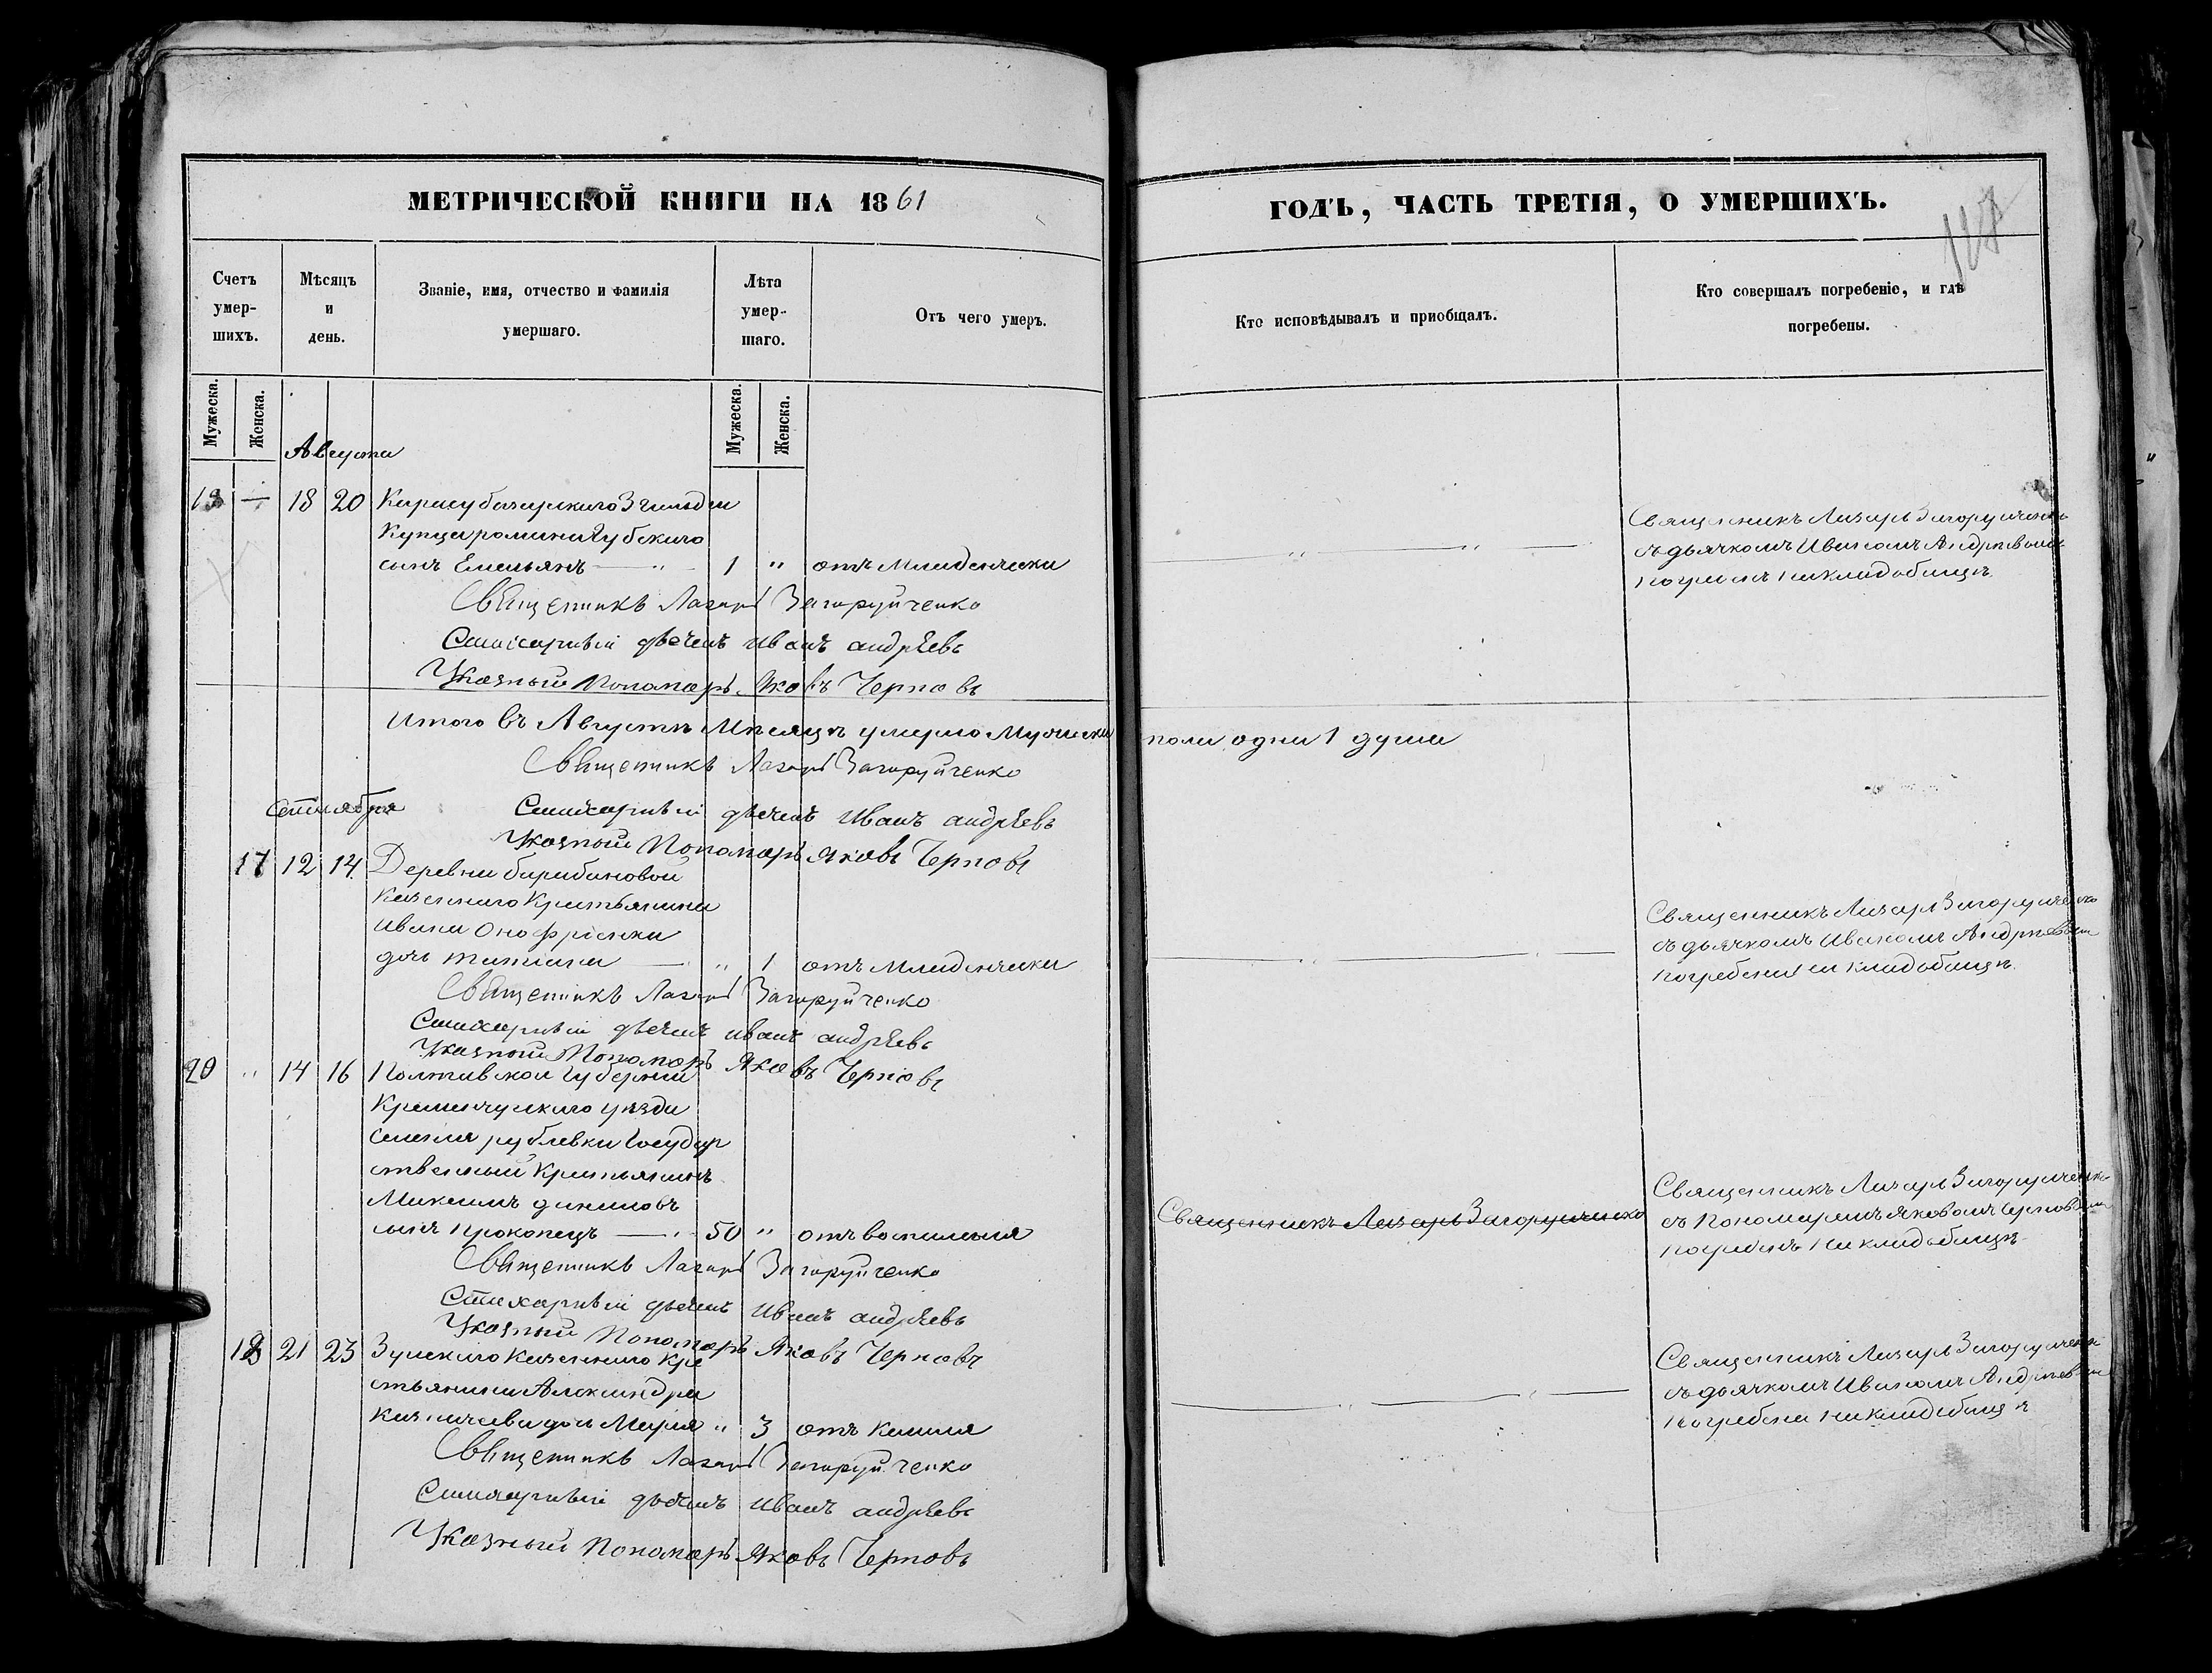 МЕТРИЧЕСКОЙ КНИГИ НА 1861
ГОДЪ, ЧАСТЬ ТРЕТІЯ, О УМЕРШИХЪ.
Счетъ умер-шихъ.
Мѣсяцъ и день.
Званіе, имя, отчество и фамилія умершаго.
Лѣта умер-шаго.
Отъ чего умеръ.
Кто исповѣдывалъ и пріобщалъ.
Кто совершалъ погребеніе, и гдѣ погребены.
Мужеска.
Женска.
Мужеска.
Женска.
Августа
— 18 20 Карасубазарскаго 3 гильдии
Купца
сынъ Емельянъ — " 1 " отъ младенчески
Священникъ Лазарь Загоруйченко
съ дьячкомъ Иваномъ Андреевымъ
на кладобищѣ
Священникъ Лазарь Загоруйченко
Стихарный дьячекъ Иванъ андрѣевъ
Указный Пономарь Яковъ Черновъ
Итого въ Августѣ Мѣсяцѣ умерло Мужеска пола одна 1 душа
Священникъ Лазарь Загоруйченко
Сентября
Стихарный дьячекъ Иванъ андрѣевъ
Указный Пономарь Яковъ Черновъ
17 12 14 Деревни
Казеннаго Крестьянина
Ивана Онофріенка
дочь татіана — " 1 отъ младенчески
Священникъ Лазарь Загоруйченко
съ дьячкомъ Иваномъ Андреевымъ
погребена на кладобищѣ
Священникъ Лазарь Загоруйченко
Стихарный дьячекъ иванъ андрѣевъ
Указный Пономарь Яковъ Черновъ
20 " 14 16 Полтавской Губерніи
Кременчугскаго уѣзда
рублевки Государ
ственный Крестьянинъ
Максимъ даниловъ
сынъ Прокопецъ — " 50 " отъ воспаленія
Священникъ Лазарь Загоруйченко
Священникъ Лазарь Загоруйченко
съ Пономаремъ Яковомъ Черновымъ
погребенъ на кладобищѣ
Священникъ Лазарь Загоруйченко
Стихарный дьячекъ Иванъ андрѣевъ
Указный Пономарь Яковъ Черновъ
18 21 23 Зуйскаго Казеннаго Кре
стьянина Александра
дочь Марія " 3 отъ Кашля
Священникъ Лазарь Загоруйченко
съ дьячкомъ Иваномъ Андреевымъ
погребена на кладобищѣ
Священникъ Лазарь Загоруйченко
Стихарный дьячекъ Иванъ андрѣевъ
Указный Пономарь Яковъ Черновъ